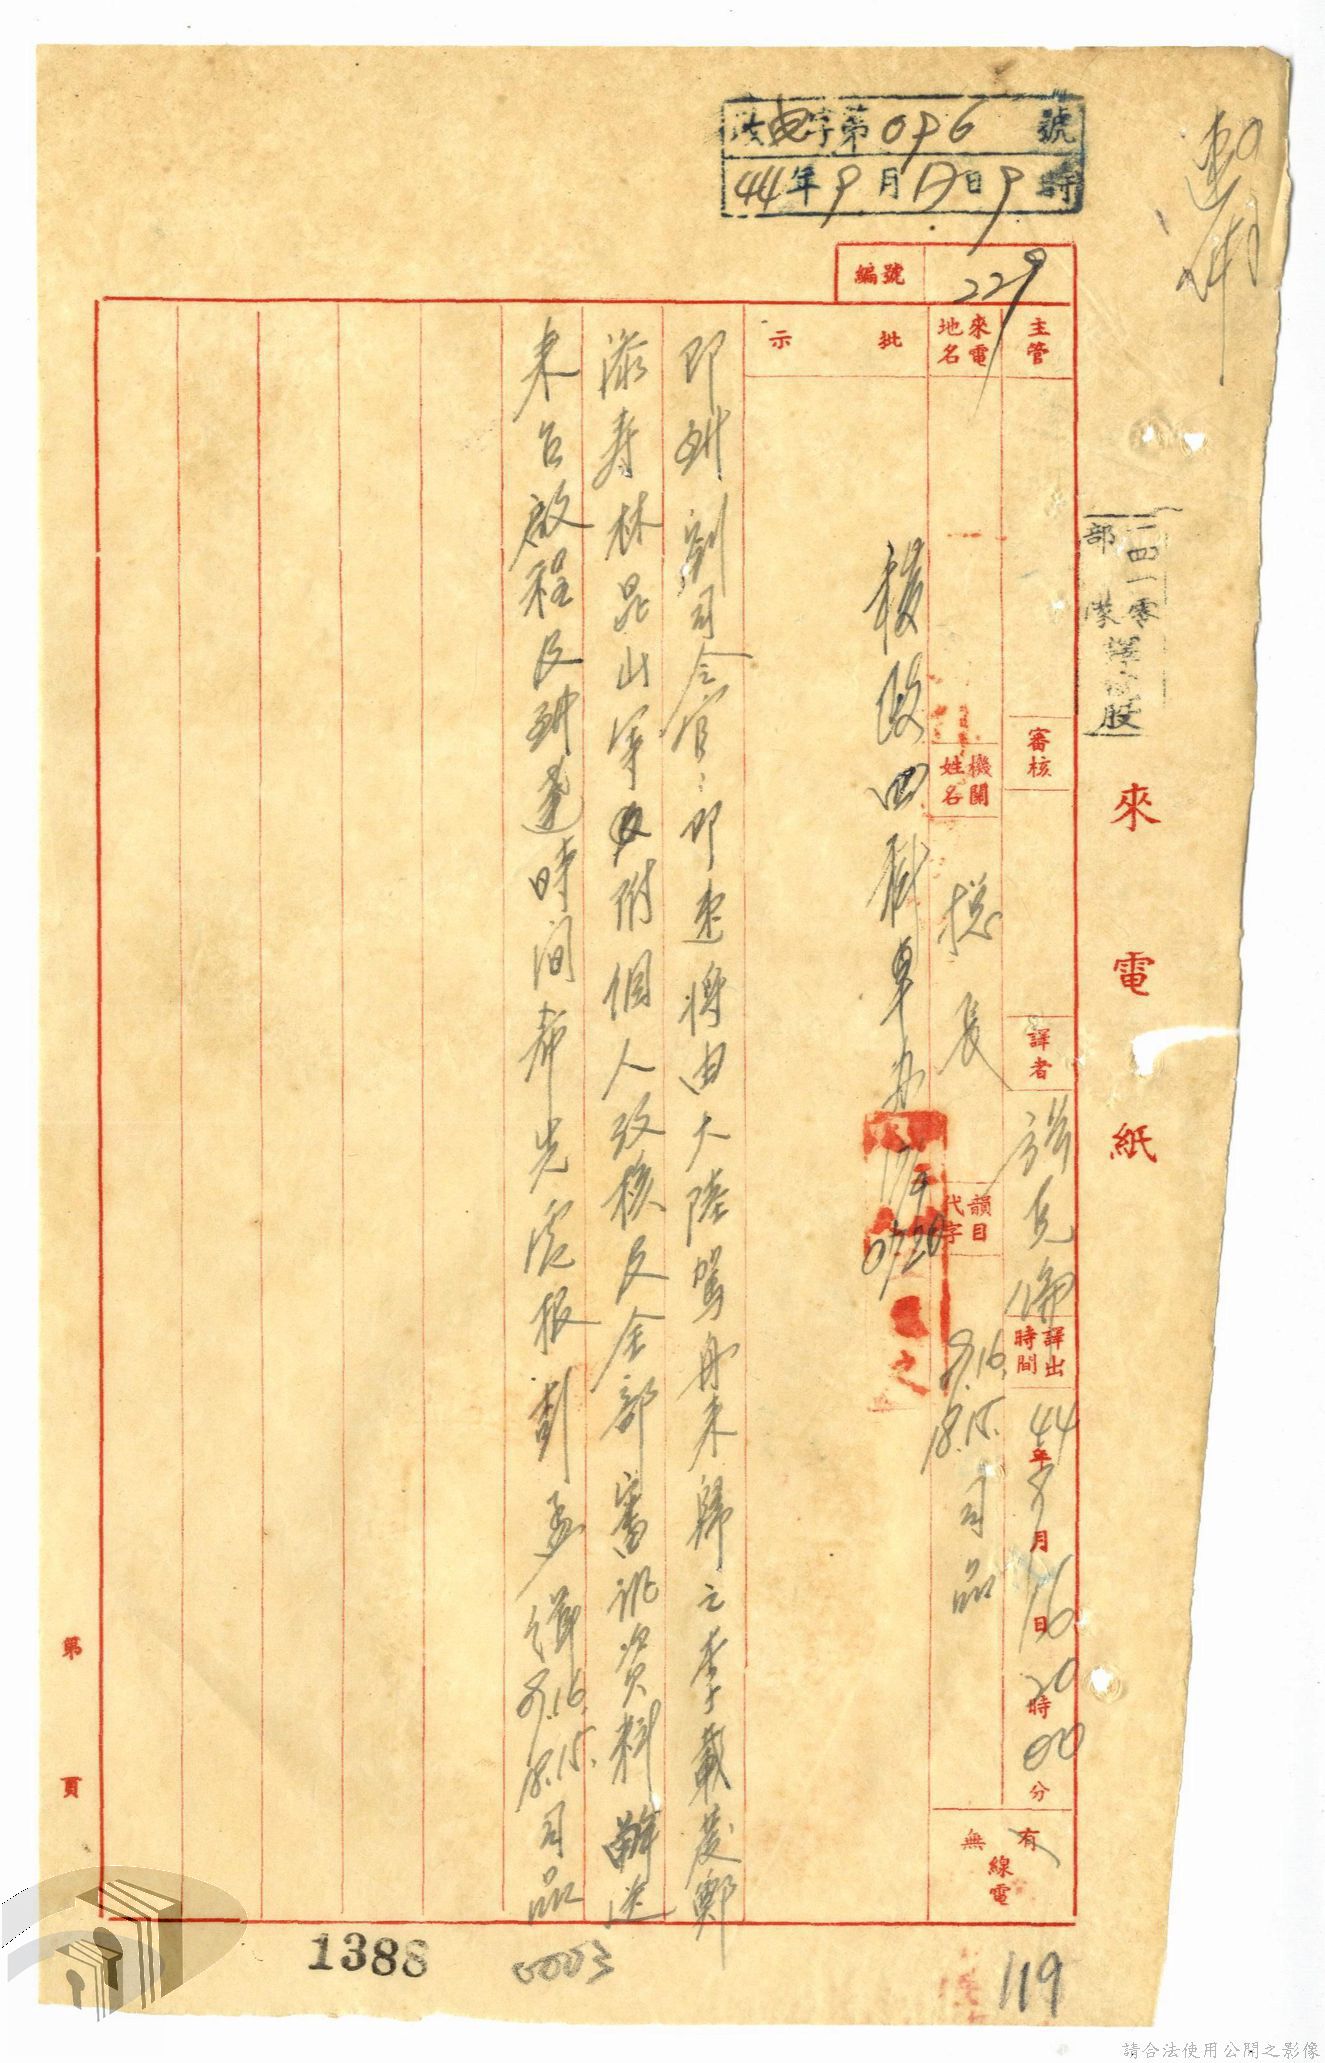 政電字第096號
44年9月17日9時
編號 229
來電紙
一四一零
部隊
譯電股
主管
審核
譯者
譯出時間 44年9月16日20時00分
來電地名
機關姓名 總長
韻目代字 9.16. 18.15. 司品
有無線電
批示
即到劉司令官:即速將由大陸駕舟來歸之李載茂鄭
添寿林昆山等附個人攷核及全部審訊資料解送
來台啟程及到達時間希先電報彭孟緝9.16.18.15.司品
第 頁
1388
0003
119
請合法使用公開之影像